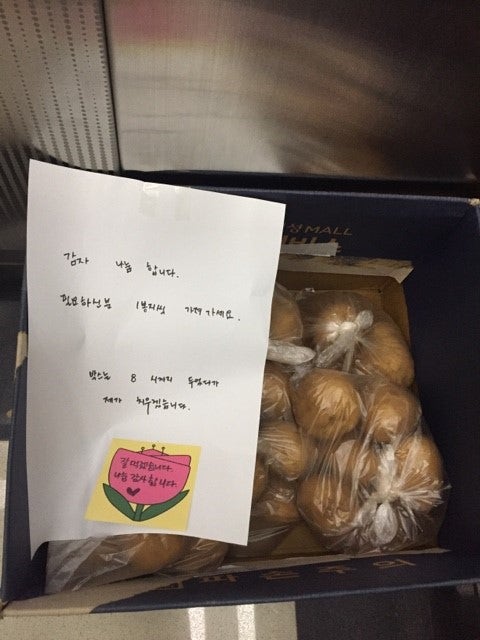 MALL
감자 나눔 합니다.
필요하신분 1봉지씩 가져가세요.
박스는 8시까지 두었다가
제가 치우겠습니다.
잘 먹겠습니다.
나눔 감사합니다.